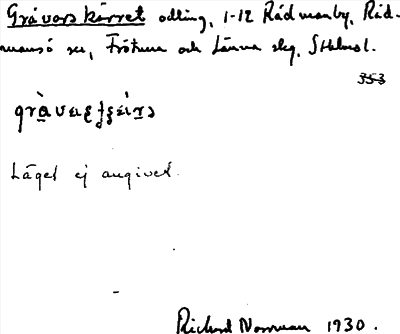 Gråvorskärret odling, 1-12 Rådmanby, Råd-
mansö sn, Frötuna och Länna slg, Sthlmsl.
353
Läget ej angivet.
Richard Norrman 1930.